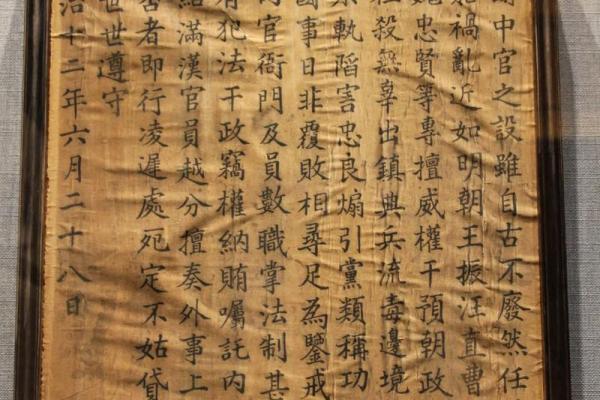 中官之設雖自古不廢然任
禍亂近如明朝王振汪直曹
忠賢等專擅威權干預朝政
殺無辜出鎮典兵流毒邊境
軌陷害忠良煽引黨類稱功
國事日非覆敗相尋足為鑒戒
官衙門及員數職掌法制甚
有犯法干政竊權納賄囑託內
結滿漢官員越分擅奏外事上
者即行凌遲處死定不姑貸
世世遵守
治十二年六月二十八日